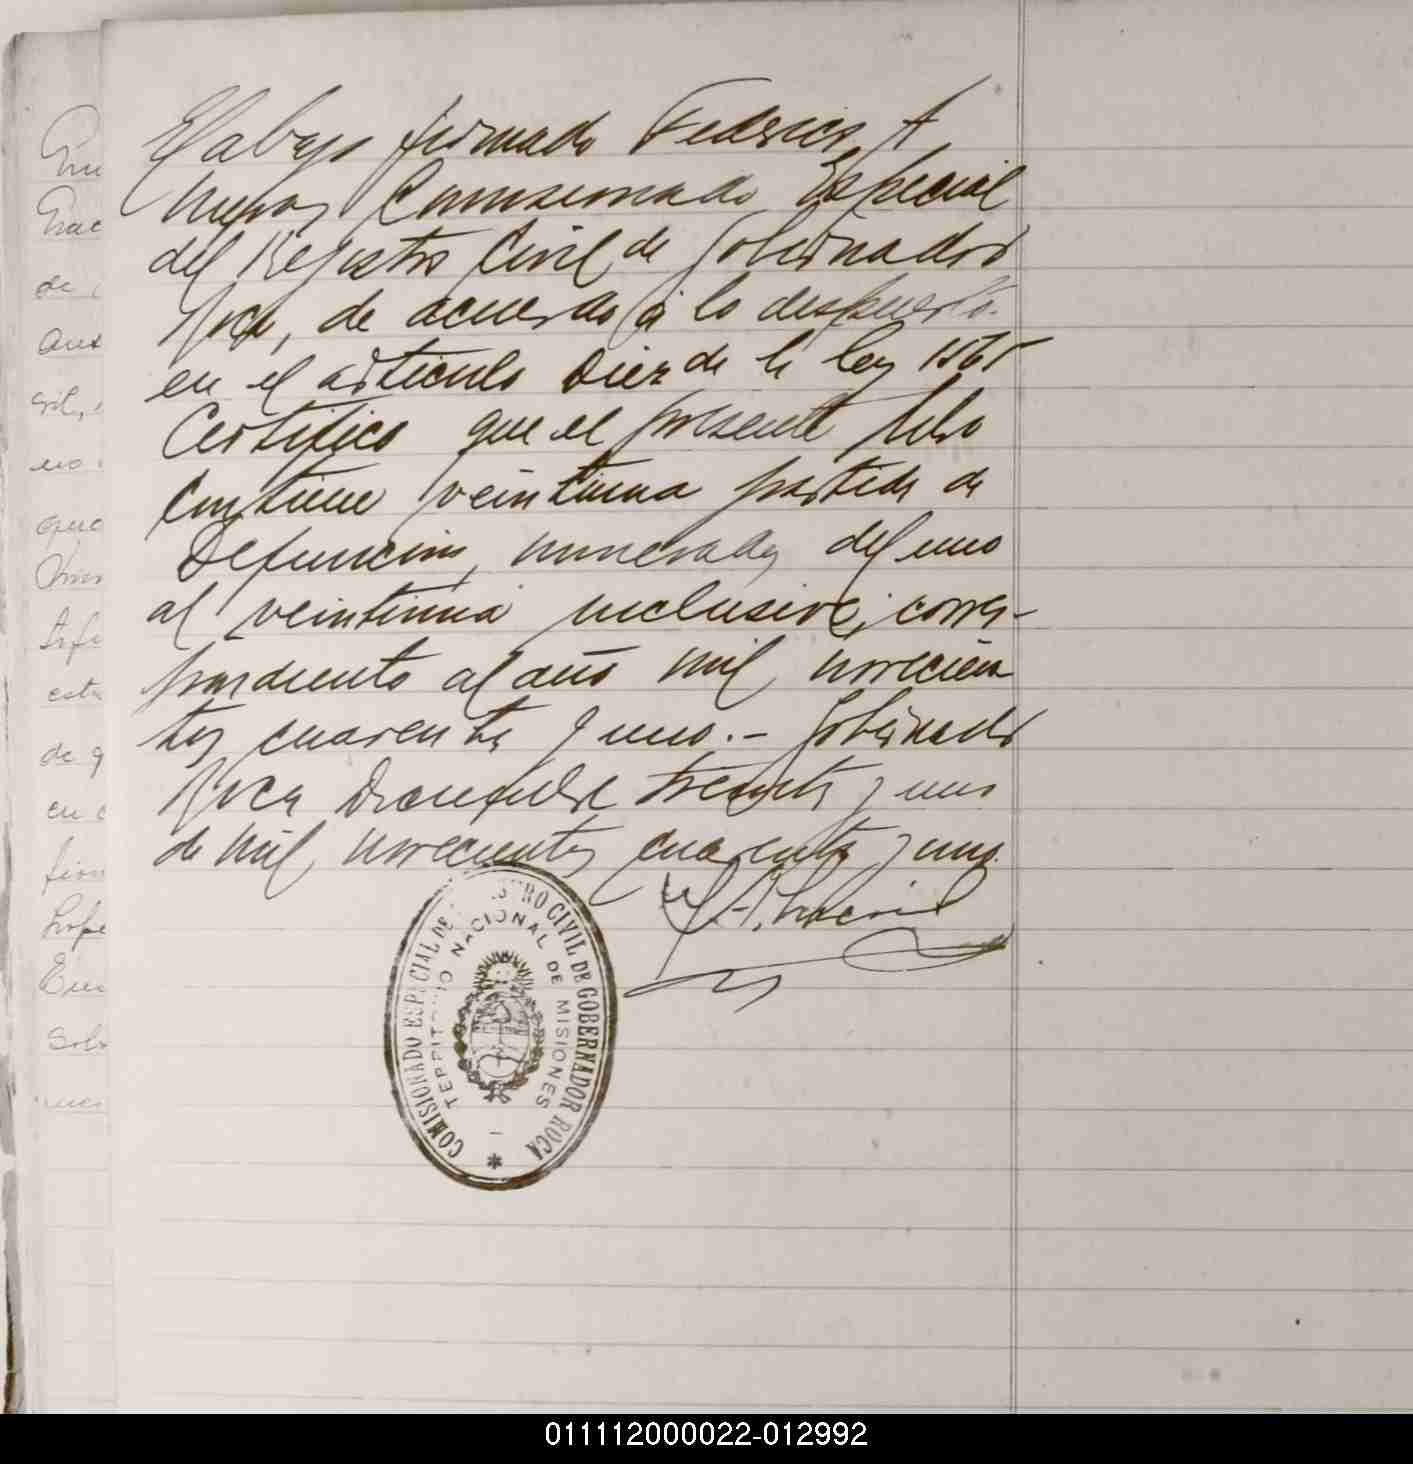 El abajo firmado Federico A
Comisionado Especial
del Registro Civil de Gobernador
Roca, de acuerdo a lo despuesto.
en el articulo Diez de la ley 1565
Certifico que el presente libro
Contiene veintiuna partida de
Defuncion, numeradas del uno
al veintiuna inclusive, corres-
pondiente al año mil novecien
tos cuarenta y uno.- Gobernador
Roca Diciembre treinta y uno
de mil novecientos cuarenta y uno.
COMISIONADO ESPECIAL DE REGISTRO CIVIL DE GOBERNADOR ROCA
TERRITORIO NACIONAL DE MISIONES
011112000022-012992